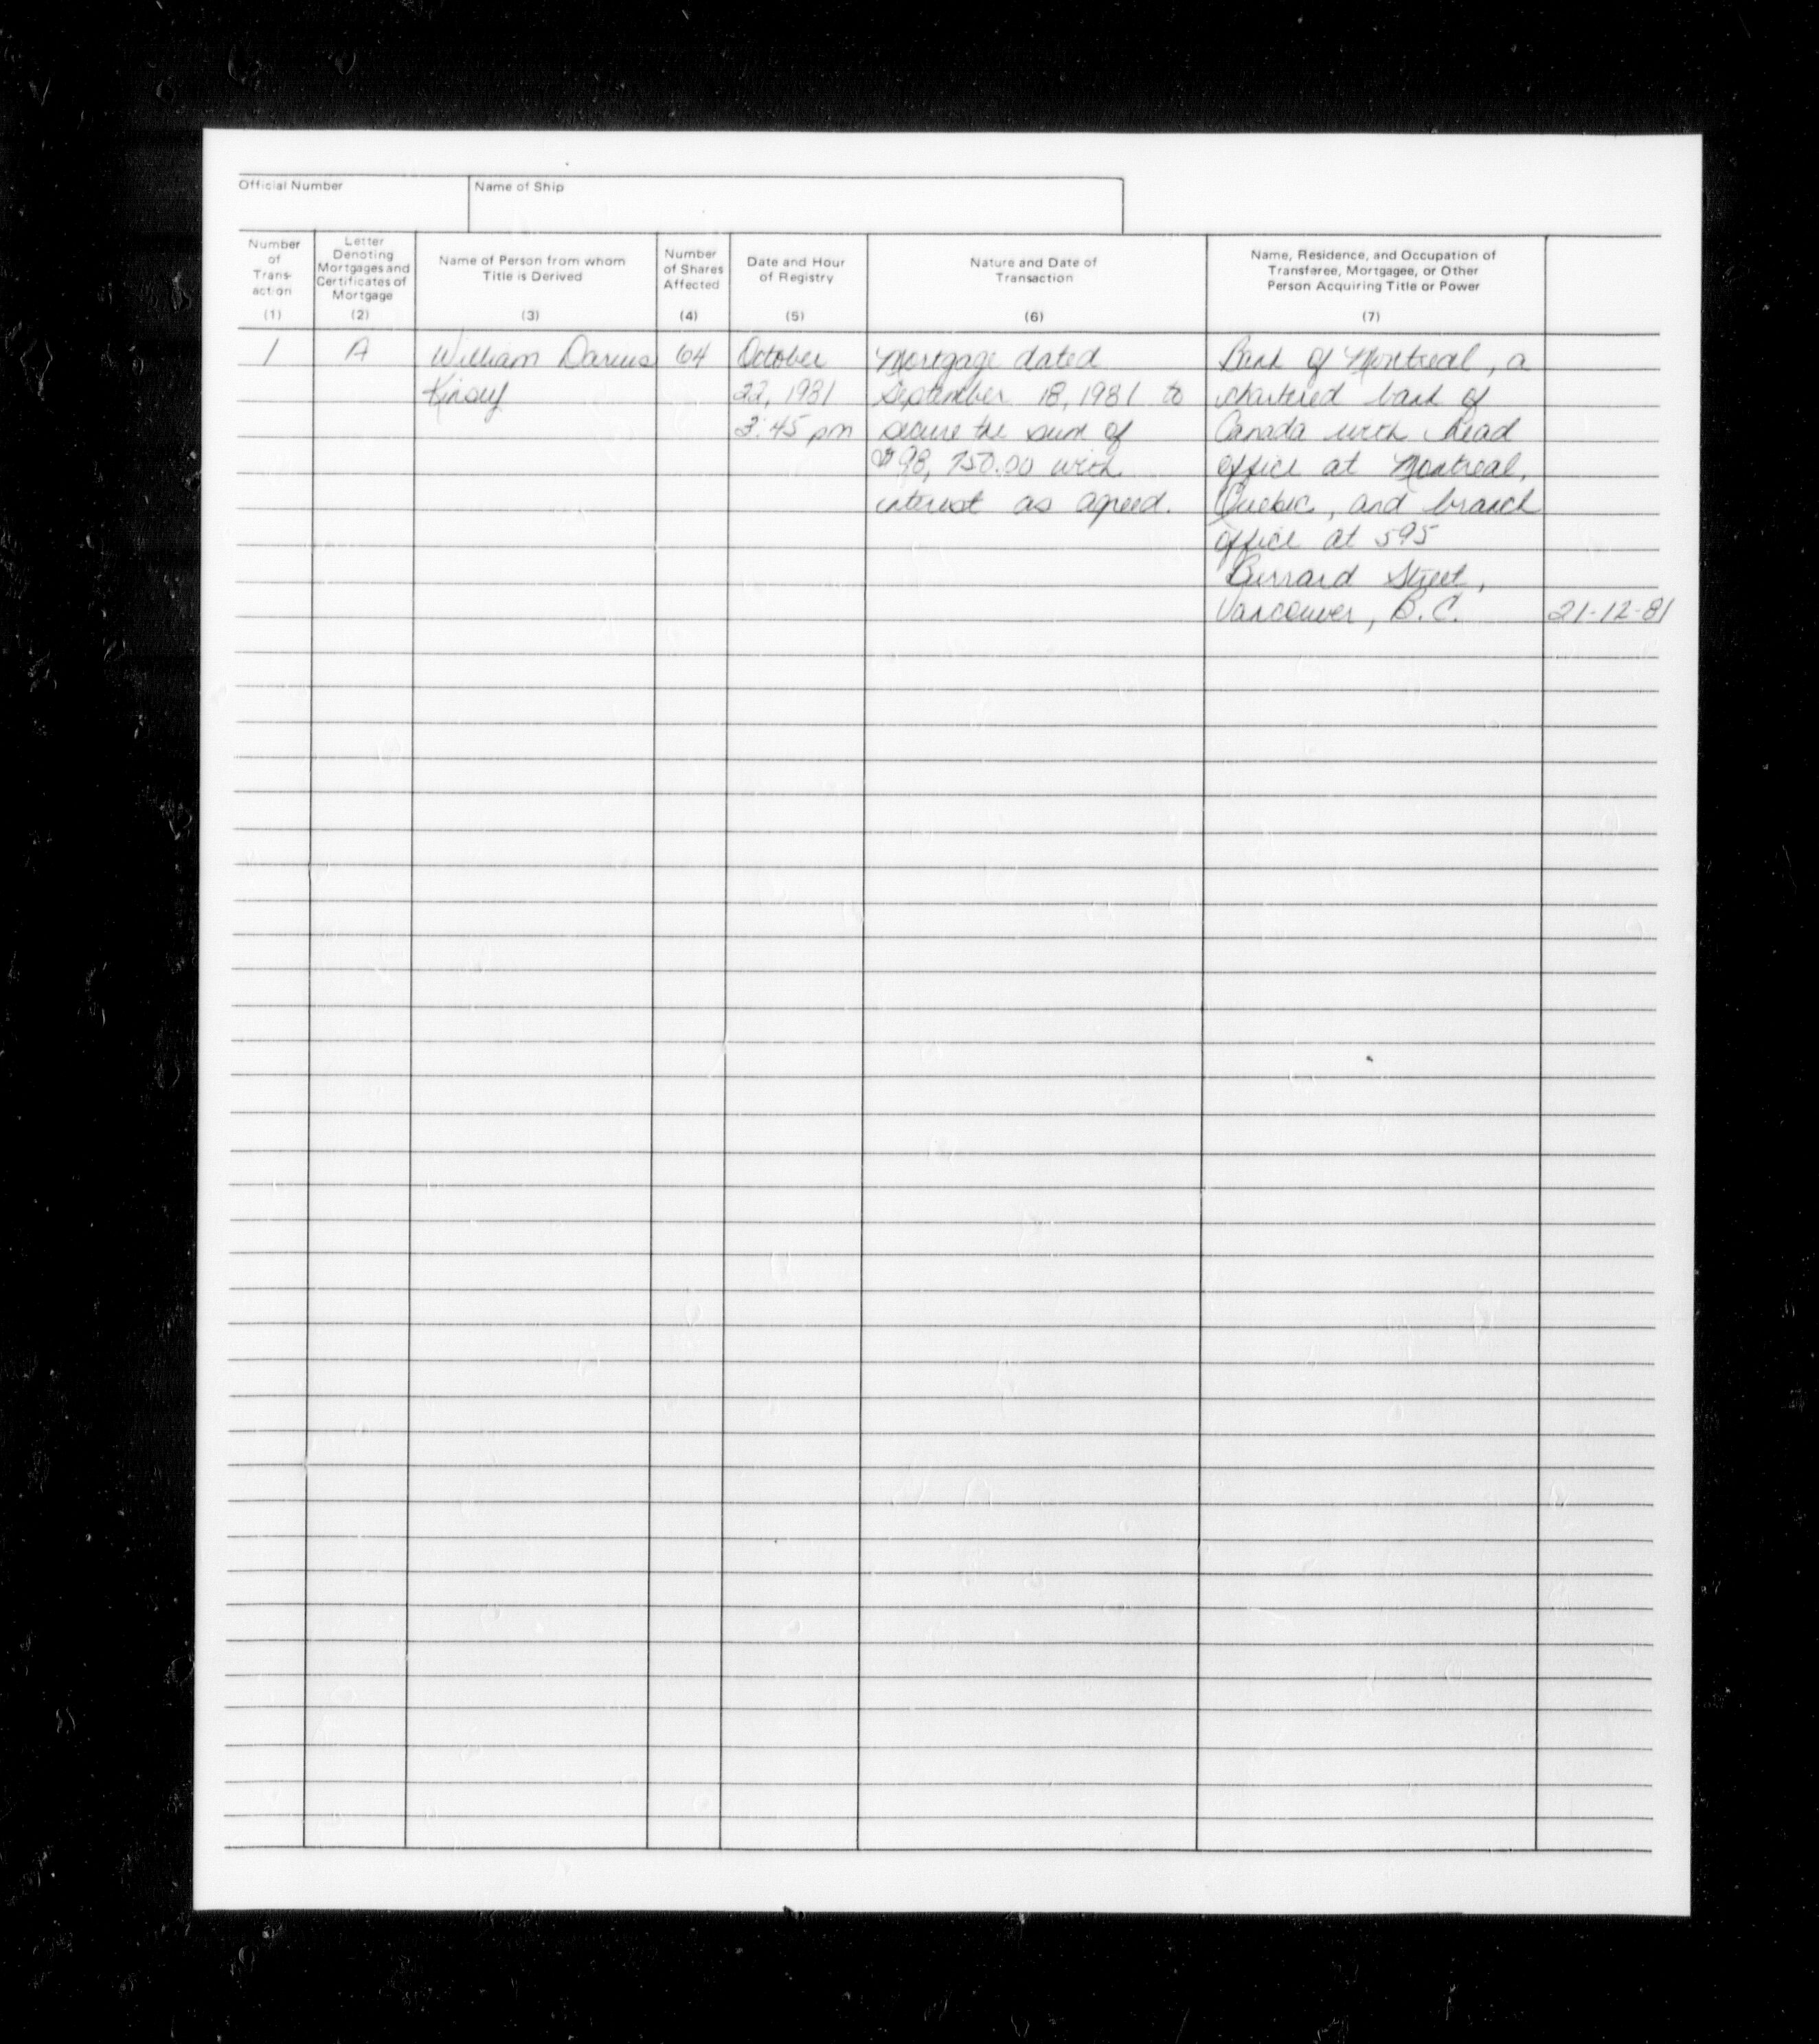 Official Number
Name of Ship
Number of Trans- action (1)
Letter Denoting Mortgages and Certificates of Mortgage (2)
Name of Person from whom Title is Derived (3)
Number of Shares Affected (4)
Date and Hour of Registry (5)
Nature and Date of Transaction (6)
Name, Residence, and Occupation of Transferee, Mortgagee, or Other Person Acquiring Title or Power (7)
1 A William Darius 64 October Mortgage dated Bank of Montreal, a
22, 1981 September 18, 1981 to chartered bank of
3:45 pm secure the sum of Canada with head
$98,750.00 with office at Montreal,
interest as agreed. Quebec, and branch
office at 595
Burrard Street,
Vancouver, B.C. 21-12-81